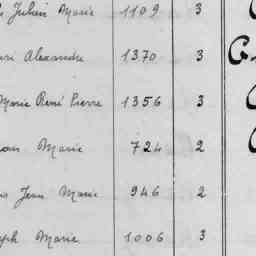 Julien Marie 1109 3
Alexandre 1370 3
Marie René Pierre 1356 3
Marie 724 2
Jean Marie 946 2
Marie 1006 3